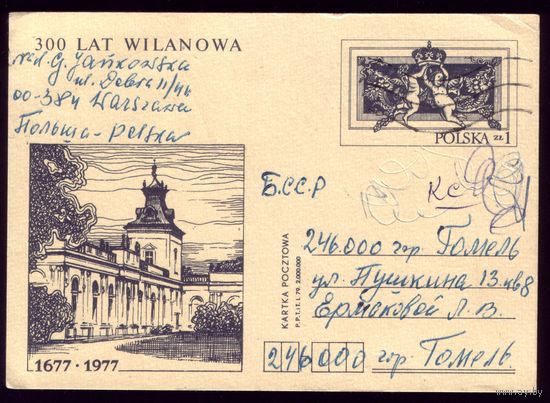 300 LAT WILANOWA
nad. G. Jańkowska
ul. Dobra 11/44
00-384 Warszawa
Польша - Polska
POLSKA zł 1
Б.С.С.Р
КС
246.000 гор. Гомель
ул. Пушкина 13. кв 8
Ермаковой Л. В.
246000 гор. Гомель.
KARTKA POCZTOWA
P.P.T.i.T. I. 79. 2.000.000
1677 · 1977